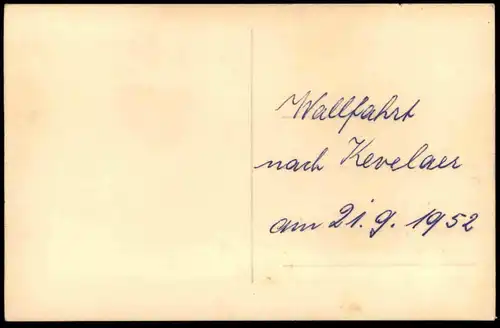 Wallfahrt
nach Kevelaer
am 21.9.1952